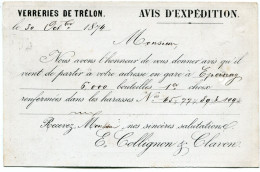 VERRERIES DE TRÉLON. AVIS D'EXPÉDITION.
le 30 Octbre 1874
Monsieur,
Nous avons l'honneur de vous donner avis qu'il
vient de partir à votre adresse en gare à Epernay
6.000 bouteilles 1re choix
renfermées dans les harasses Nos 45. 77.
Recevez nos sincères salutations
E. Collignon & Clavon.